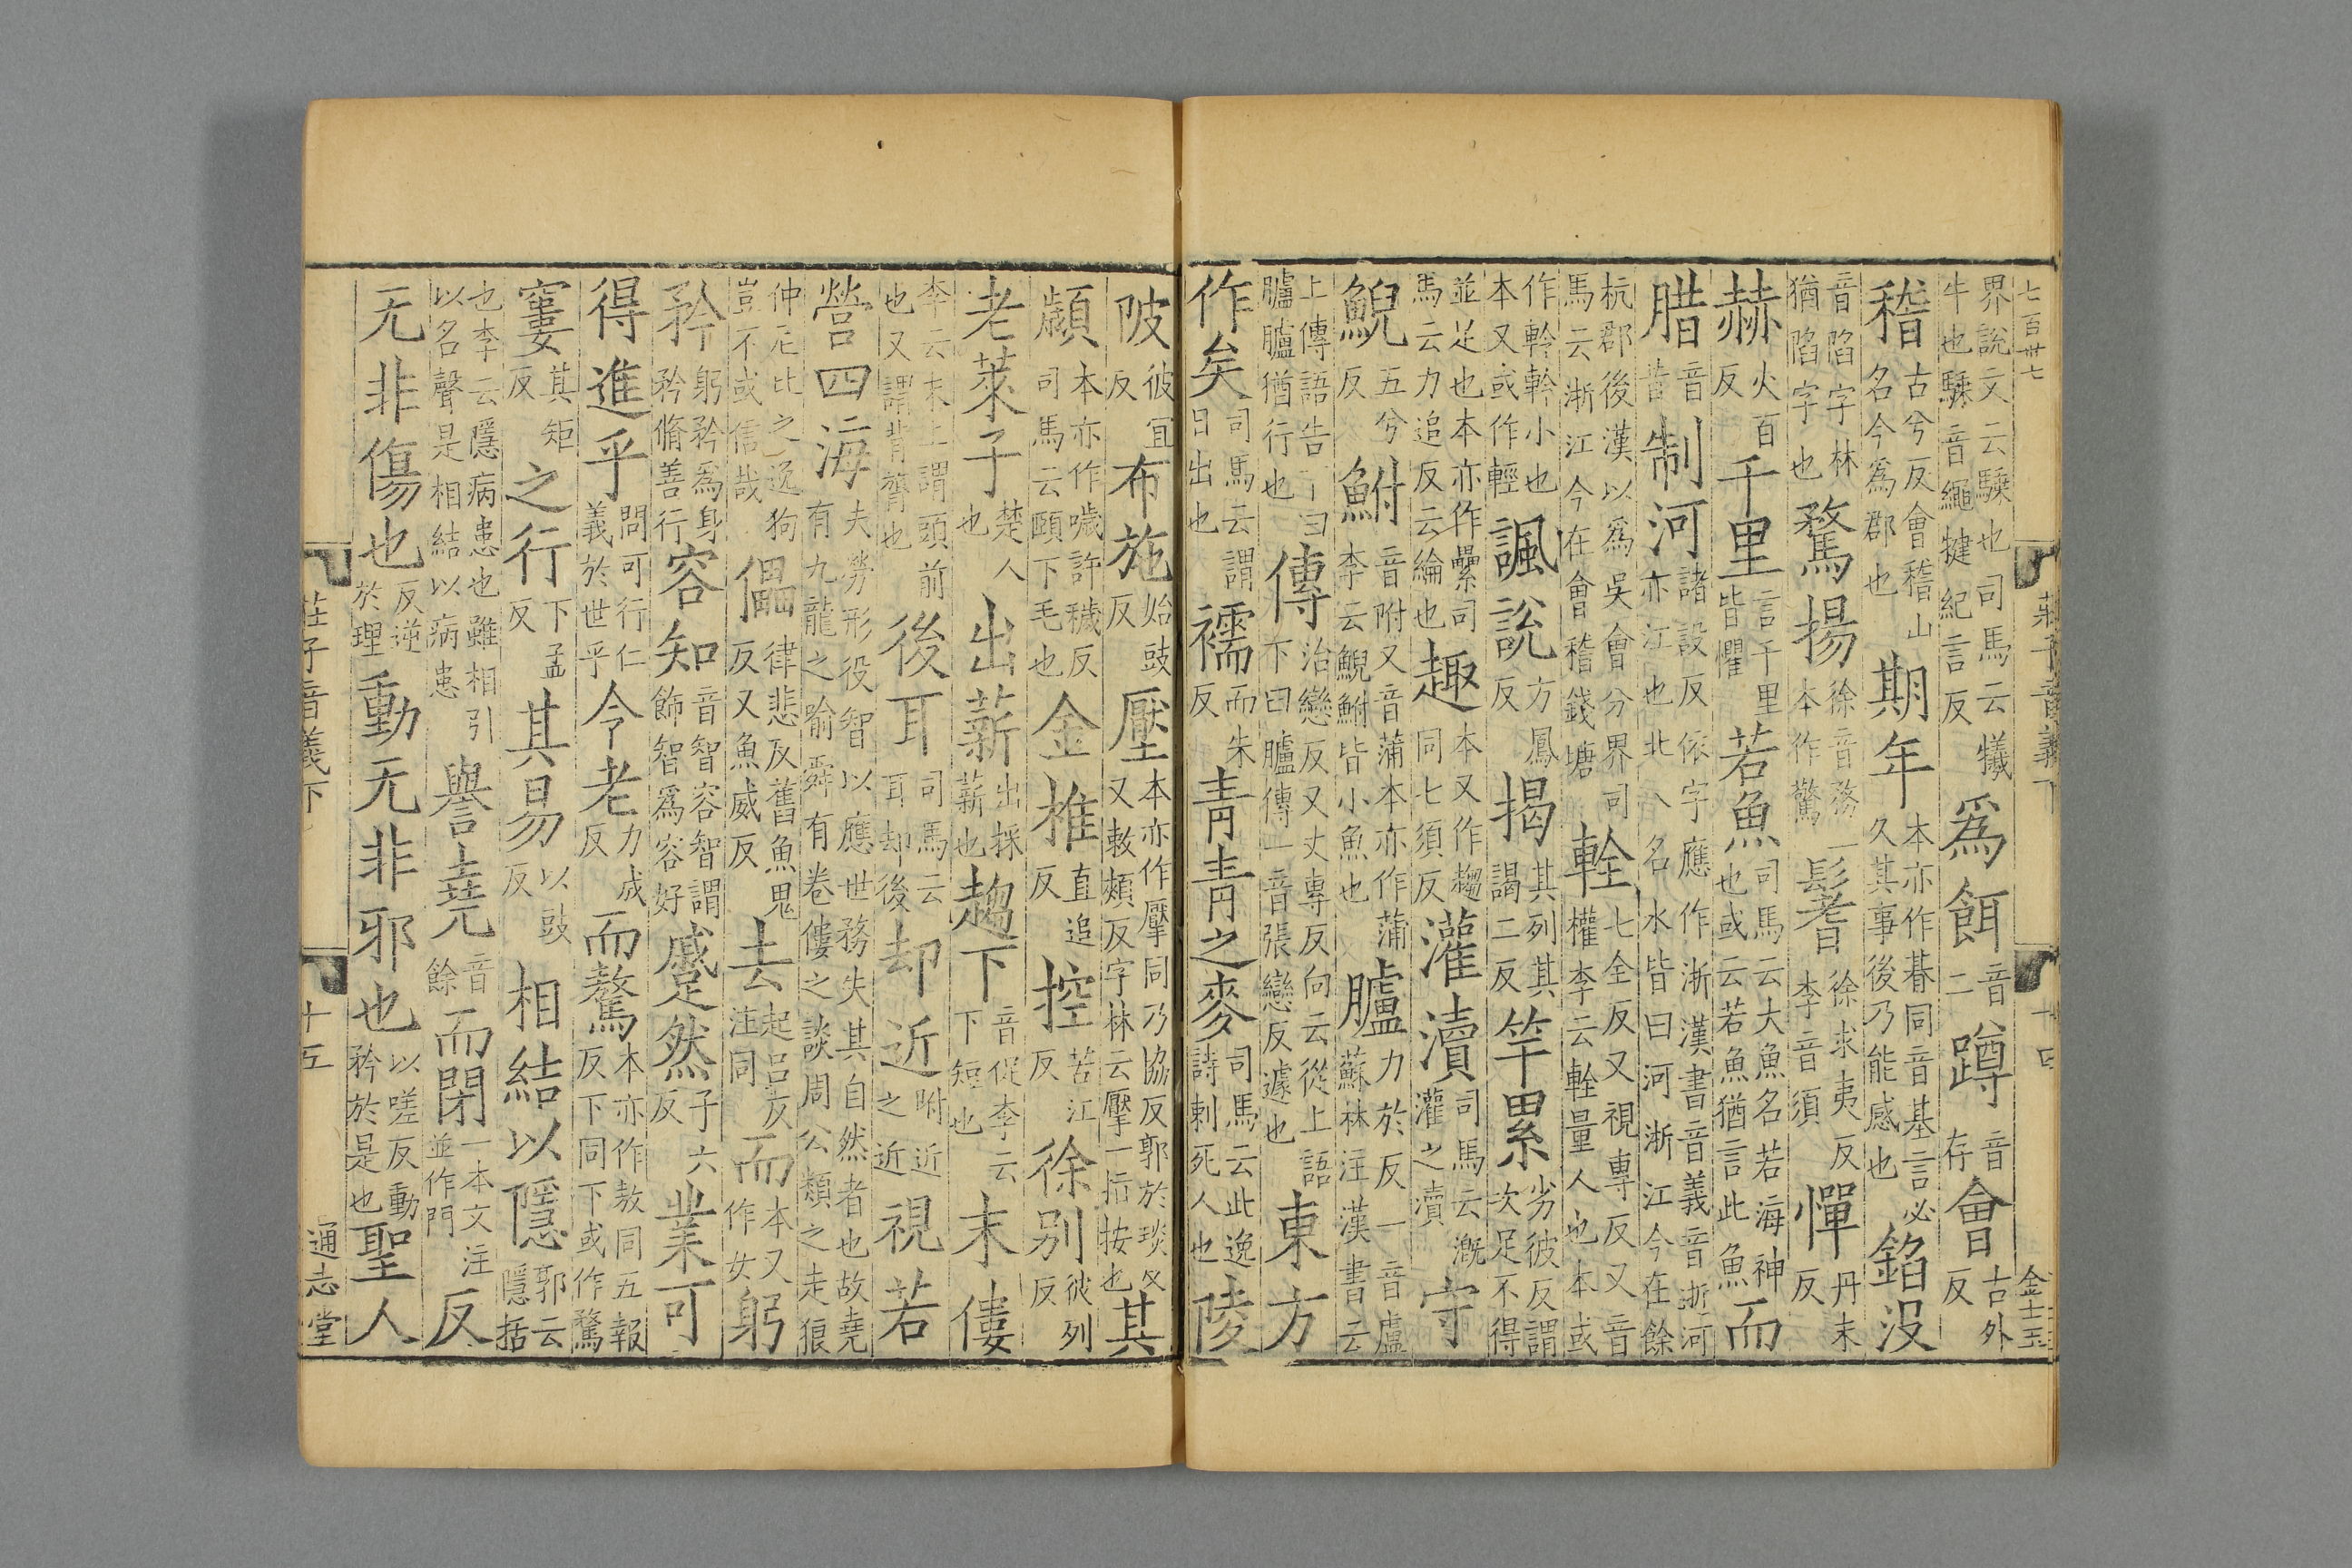 七百卅七 莊子音義下 十四 金士玉
界說文云騬也司馬云犧牛也騬音繩犍紀言反為餌音二蹲音存會古外反
稽古兮反會稽山名今為郡也期年本亦作朞同音基言必久其事後乃能感也錎没
音陷字林猶陷字也騖揚徐音務一本作驚鬐徐求夷反李音須憚丹末反
赫火百反千里言千里皆懼若魚司馬云大魚名若海神也或云若魚猶言此魚而
腊音昔制河諸設反依字應作浙漢書音義音逝河亦江也北人名水皆曰河浙江今在餘
杭郡後漢以為吳會分界司馬云浙江今在會稽錢塘輇七全反又視專反又音權李云輇量人也本或
作幹幹小也本又或作輕諷說方鳳反揭其列其謁二反竿累劣彼反謂次足不得
並足也本亦作纍司馬云力追反云綸也趣本又作趨同七須反灌瀆司馬云溉灌之瀆守
鯢五兮反鮒音附又音蒲本亦作蒲李云鯢鮒皆小魚也臚力於反一音盧蘇林注漢書云
上傳語告下曰臚臚猶行也傳治戀反又丈專反向云從上語下曰臚傳一音張戀反遽也東方
作矣司馬云謂日出也襦而朱反青青之麥司馬云此逸詩刺死人也陵
陂彼宜反布施始豉反壓本亦作擪同乃協反郭於琰反又敕頰反字林云擪一指按也其
顪本亦作噦許穢反司馬云頤下毛也金椎直追反控苦江反徐别彼列反
老萊子楚人也出薪出採薪也趨下音促李云下短也末僂
李云末上謂頭前也又謂背膂也後耳司馬云耳却後却近附近之近視若
營四海夫勞形役智以應世務失其自然者也故堯有九龍之喻舜有卷僂之談周公類之走狼
仲尼比之逸狗豈不或信哉儡律悲反舊魚鬼反又魚威反去起呂反注同而本又作女躬
矜躬矜為身矜脩善行容知音智容智謂飾智為容好蹙然子六反業可
得進乎問可行仁義於世乎令老力成反而驁本亦作敖同五報反下同下或作騖
窶其矩反之行下孟反其易以豉反相結以隱郭云隱括
也李云隱病患也雖相引以名聲是相結以病患譽堯音餘而閉一本文注並作門反
无非傷也反逆於理動无非邪也以嗟反動矜於是也聖人
莊子音義下 十五 通志堂